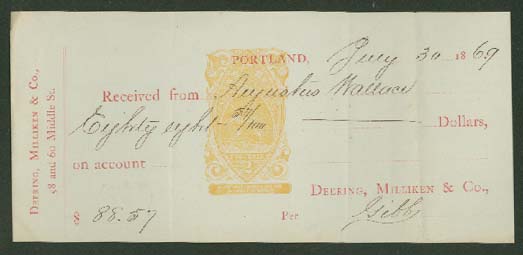 Deering, Milliken & Co.,
58 and 60 Middle St.
PORTLAND, July 30 1869
Received from Augustus Wallace
Eighty eight 57/100 Dollars,
on account
Deering, Milliken & Co.,
$ 88.57 Per Gibbs